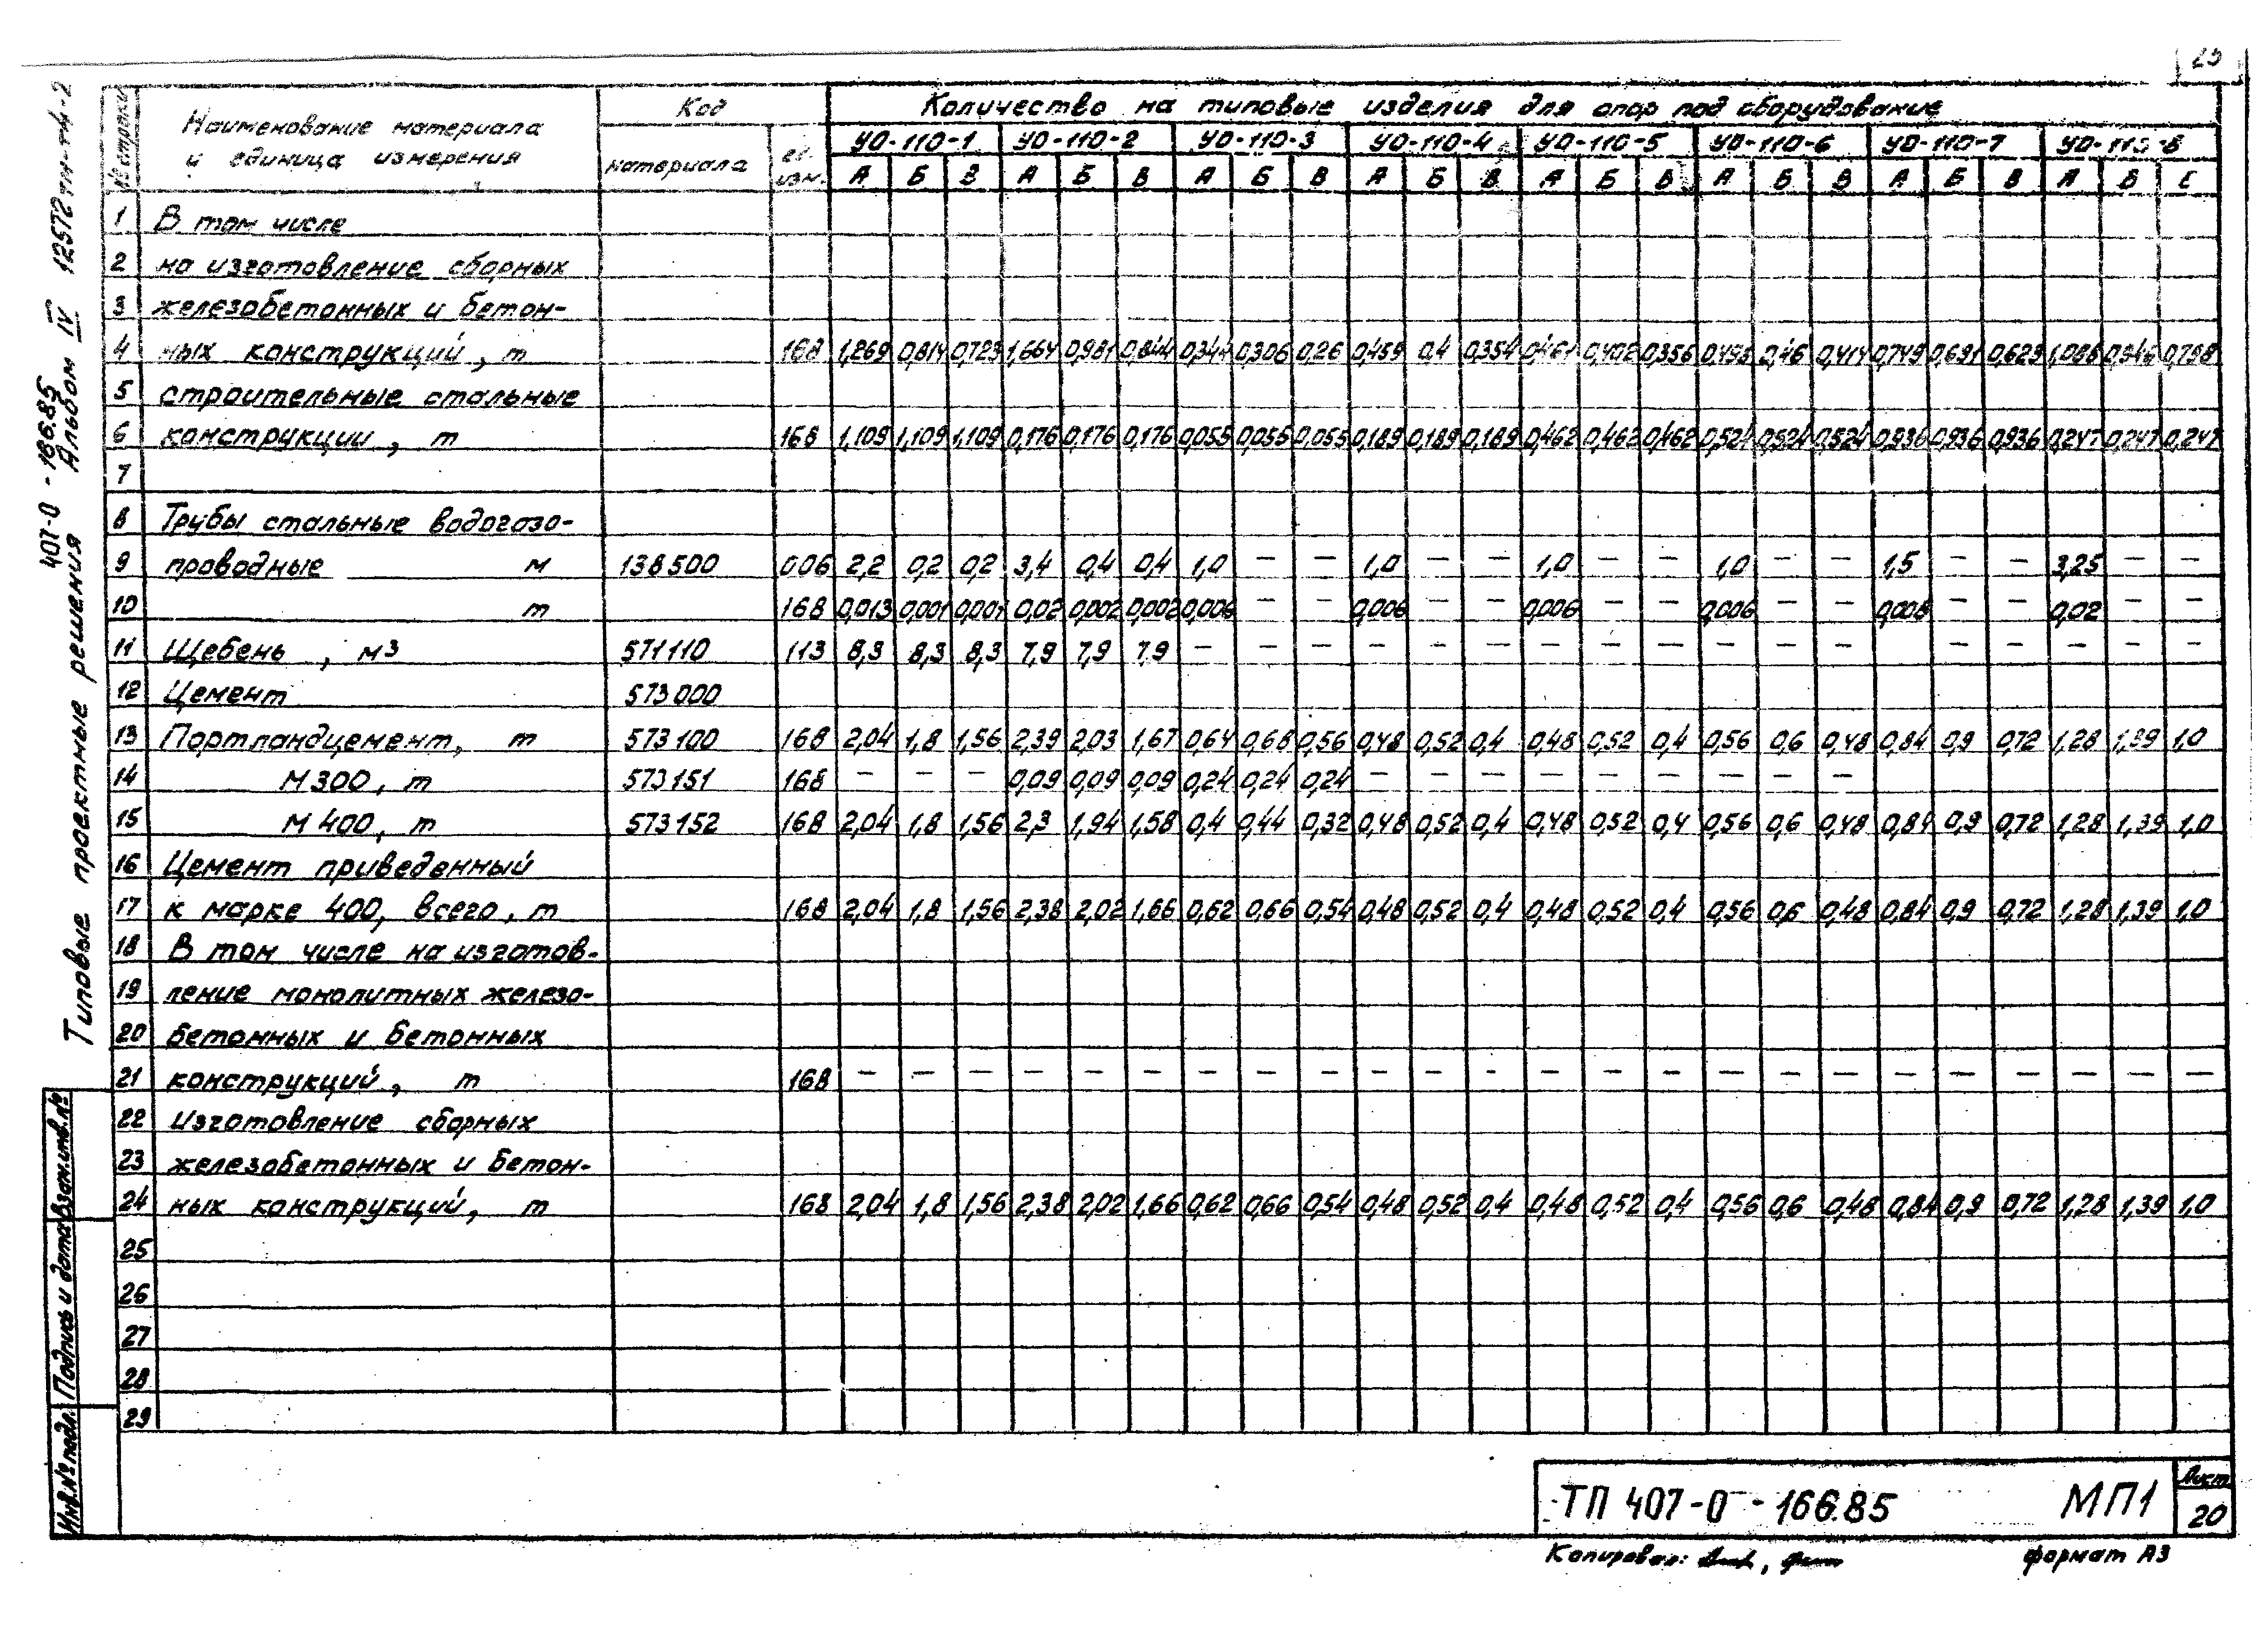 25
Типовые проектные решения 407-0-166.85 Альбом IV 12572тм-т4-2
№ строки
Наименование материала и единица измерения
Код
материала
ед. изм.
Количество на типовые изделия для опор под оборудование
УО-110-1 УО-110-2 УО-110-3 УО-110-4 УО-110-5 УО-110-6 УО-110-7 УО-110-8
А Б В А Б В А Б В А Б В А Б В А Б В А Б В А Б С
1 В том числе
2 на изготовление сборных
3 железобетонных и бетон-
4 ных конструкций, т 168 1,269 0,814 0,723 1,664 0,981 0,844 0,344 0,306 0,26 0,459 0,4 0,354 0,461 0,402 0,356 0,498 0,46 0,414 0,749 0,691 0,623 1,086 0,946 0,798
5 строительные стальные
6 конструкции, т 168 1,109 1,109 1,109 0,176 0,176 0,176 0,055 0,055 0,055 0,189 0,189 0,189 0,462 0,462 0,462 0,524 0,524 0,524 0,936 0,936 0,936 0,247 0,247 0,247
7
8 Трубы стальные водогазо-
9 проводные м 138500 006 2,2 0,2 0,2 3,4 0,4 0,4 1,0 – – 1,0 – – 1,0 – – 1,0 – – 1,5 – – 3,25 – –
10 т 168 0,013 0,001 0,001 0,02 0,002 0,002 0,006 – – 0,006 – – 0,006 – – 0,006 – – 0,008 – – 0,02 – –
11 Щебень, м3 571110 113 8,3 8,3 8,3 7,9 7,9 7,9 – – – – – – – – – – – – – – – – – –
12 Цемент 573000
13 Портландцемент, т 573100 168 2,04 1,8 1,56 2,39 2,03 1,67 0,64 0,68 0,56 0,48 0,52 0,4 0,48 0,52 0,4 0,56 0,6 0,48 0,84 0,9 0,72 1,28 1,39 1,0
14 М300, т 573151 168 – – – 0,09 0,09 0,09 0,24 0,24 0,24 – – – – – – – – –
15 М400, т 573152 168 2,04 1,8 1,56 2,3 1,94 1,58 0,4 0,44 0,32 0,48 0,52 0,4 0,48 0,52 0,4 0,56 0,6 0,48 0,84 0,9 0,72 1,28 1,39 1,0
16 Цемент приведенный
17 к марке 400, всего, т 168 2,04 1,8 1,56 2,38 2,02 1,66 0,62 0,66 0,54 0,48 0,52 0,4 0,48 0,52 0,4 0,56 0,6 0,48 0,84 0,9 0,72 1,28 1,39 1,0
18 В том числе на изготов-
19 ление монолитных железо-
20 бетонных и бетонных
21 конструкций, т 168 – – – – – – – – – – – – – – – – – – – – – – – –
22 изготовление сборных
23 железобетонных и бетон-
24 ных конструкций, т 168 2,04 1,8 1,56 2,38 2,02 1,66 0,62 0,66 0,54 0,48 0,52 0,4 0,48 0,52 0,4 0,56 0,6 0,48 0,84 0,9 0,72 1,28 1,39 1,0
25
26
27
28
29
Взам.инв.№
Подпись и дата
Инв.№ подл.
ТП 407-0-166.85 МП1
Лист
20
Копировал:
формат А3